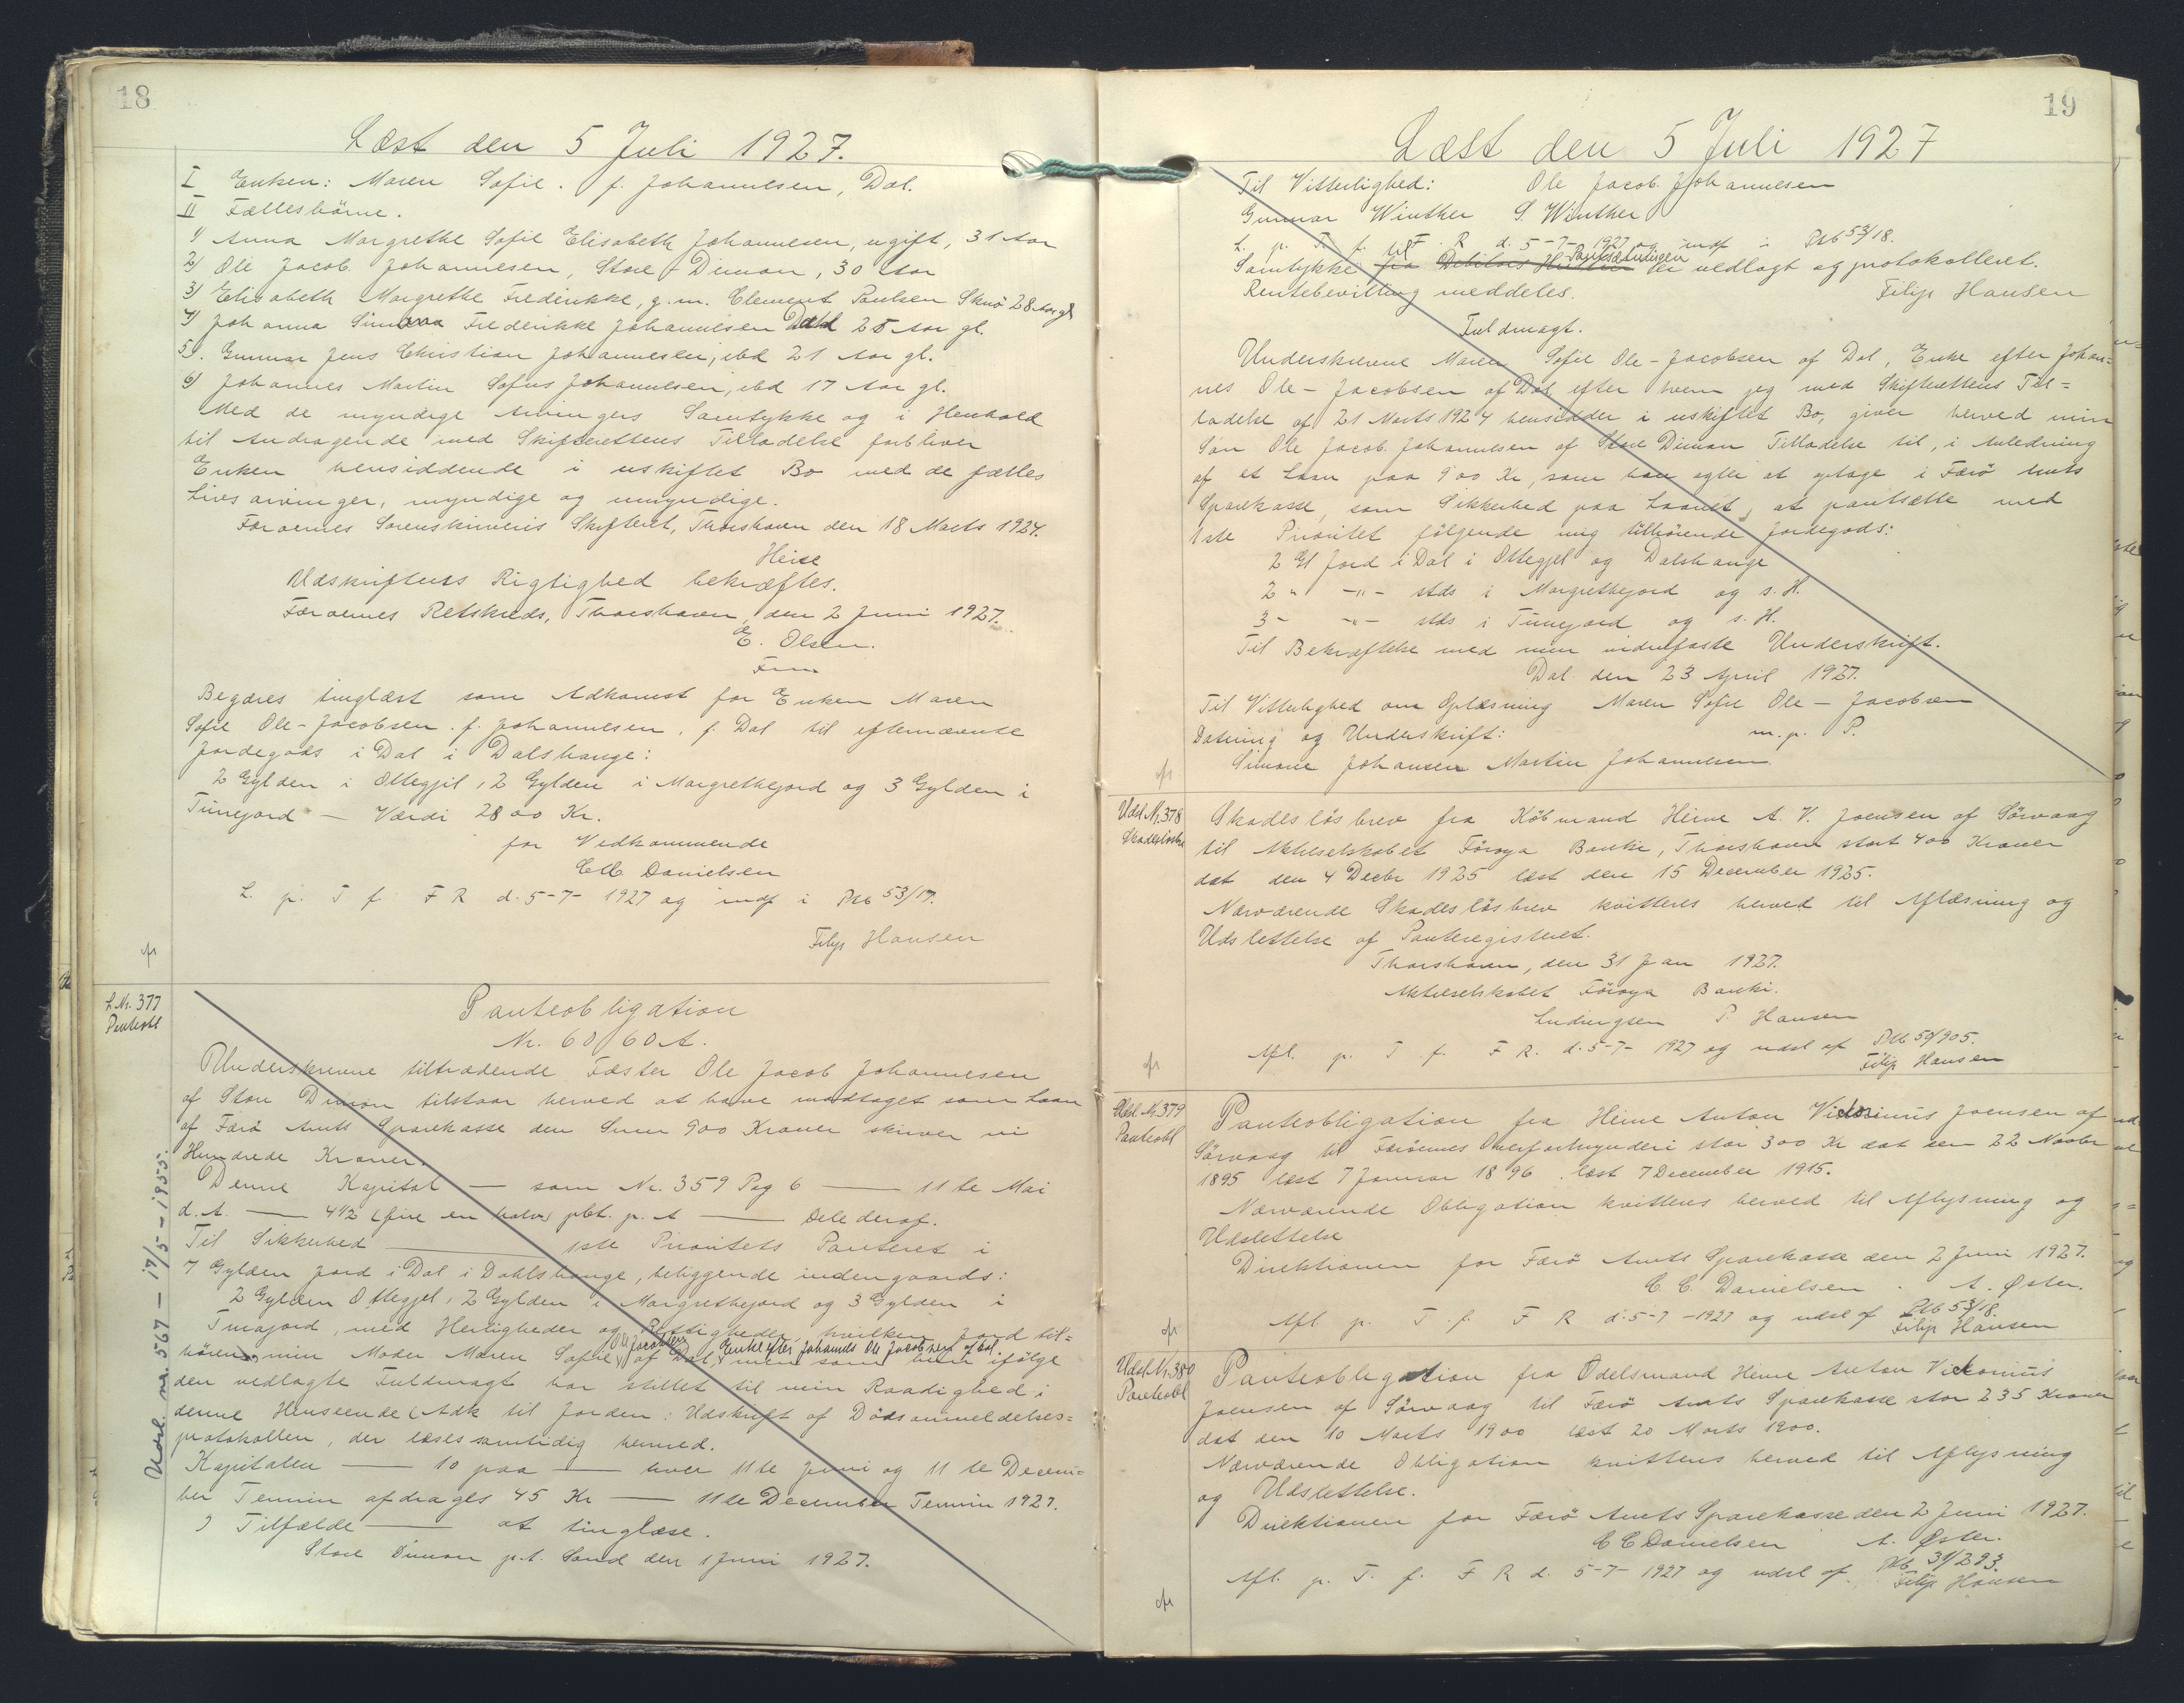 18
Læst den 5 Juli 1927.
I Enken: Maren Sofie. f. Johannesen, Dal.
II Fællesbörne.
1) Anna Margrethe Sofie Elisabeth Johannesen, ugift, 31 Aar
2) Ole Jacob Johannesen, Store Dimon, 30 Aar
3) Elisabeth Margrethe Frederikke, g. m. Clement Poulsen Skuö 28 Aar gl
4) Johanna Simona Frederikke Johannesen Dahl 25 Aar gl.
5). Gunnar Jens Christian Johannesen, ibd 21 Aar gl.
6) Johannes Martin Sofus Johannesen, ibd 17 Aar gl.
Med de myndige Arvingers Samtykke og i Henhold
til Andragende med Skifterettens Tilladelse forbliver
Enken hensiddende i uskiftet Bo med de fælles
Livsarvinger, myndige og umyndige.
Færoernes Sorenskriveris Skifteret, Thorshavn den 18 Marts 1924.
Heise
Udskriftens Rigtighed bekræftes.
Færoernes Retskreds, Thorshavn, den 2 Juni 1927.
E. Olsen.
Fm
Begæres tinglæst som Adkomst for Enken Maren
Sofie Ole-Jacobsen f. Johannesen, f. Dal til efternævnte
Jordegods i Dal i Dalshauge:
2 Gylden i Ottegjil, 2 Gylden i Margrethejord og 3 Gylden i
Tunejord — Værdi 2800 Kr.
for Vedkommende
CC. Danielsen
L. p. T f. F R d. 5-7-1927 og indf i Ptb 53/17.
Filip Hansen
L. Nr. 377
Panteobl
Panteobligation
Nr. 60/60 A.
Underskrevne tiltrædende Fæster Ole Jacob Johannesen
af Store Dimon tilstaar herved at have modtaget som Laan
af Færö Amts Sparekasse den Sum 900 Kroner skriver ni
Hundrede Kroner.
Denne Kapital — som Nr. 359 Pag 6 — 11te Mai
d. A. — 4½ (fire en halv) pCt. p. A — Dele deraf.
Til Sikkerhed — 1ste Prioritets Panteret i
7 Gylden Jord i Dal i Dahlshauge, beliggende indengaards:
2 Gylden Ottegjel, 2 Gylden i Margrethejord og 3 Gylden i
Tunajord, med Herligheder og Rettigheder, hvilken Jord til=
Ole Jacobsen Enke efter Johannes Ole Jacobsen af Dal.
hörer min Moder Maren Sofie af Dal, men som hun ifölge
den vedlagte Fuldmagt har stillet til min Raadighed i
denne Henseende (Adk til Jorden: Udskrift af Dödsanmeldelses=
protokollen, der læses samtidig hermed.
Kapitalen — 10 paa — hver 11te Juni og 11te Decem=
ber Termin afdrages 45 Kr — 11te December Termin 1927.
I Tilfælde — at tinglæse.
Store Dimon p.t. Sand den 1 Juni 1927.
Udsl. nr. 567 — 17/5 - 1955.
19
Læst den 5 Juli 1927
Til Vitterlighed: Ole Jacob Johannesen
Gunnar Winther S. Winther
L. p. T. f. F. R d. 5-7-1927 og indf i Ptb 53/18.
til Pantsætningen
Samtykke fra Debitors Hustru er vedlagt og protokolleret.
Rentebevilling meddeles. Filip Hansen
Fuldmagt.
Underskrevne Maren Sofie Ole-Jacobsen af Dal, Enke efter Johan=
nes Ole-Jacobsen af Dal efter hvem jeg med Skifterettens Til=
ladelse af 21 Marts 1924 hensidder i uskiftet Bo, giver herved min
Sön Ole Jacob Johannesen af Store Dimon Tilladelse til, i Anledning
af et Laan paa 900 Kr, som han agter at optage i Færö Amts
Sparekasse, som Sikkerhed paa Laanet, at pantsætte med
1ste Prioritet fölgende mig tilhörende Jordegods:
2 Gl Jord i Dal i Ottegjel og Dalshauge
2 " -"- stds i Margrethejord og s. H.
3 - -"- stds i Tunejord og s. H.
Til Bekræftelse med min underfaste Underskrift.
Dal den 23 April 1927.
Til Vitterlighed om Oplæsning Maren Sofie Ole-Jacobsen
Datering og Underskrift: m. p. P.
Simone Johansen Martin Johannesen
Udsl. Nr. 378
Skadeslösbr
Skadeslösbrev fra Köbmand Heine A. V. Joensen af Sörvaag
til Aktieselskabet Föroya Banki, Thorshavn stort 400 Kroner
dat den 4 Decbr 1925 læst den 15 December 1925.
Nærværende Skadeslösbrev kvitteres herved til Aflæsning og
Udslettelse af Panteregisteret.
Thorshavn, den 31 Jan 1927.
Aktieselskabet Föroya Banki.
Ludvigsen P. Hansen
Afl. p. T. f. F R. d. 5-7-1927 og udsl af Ptb 50/905.
Filip Hansen
Udsl. Nr. 379
Panteobl
Panteobligation fra Heine Anton Victorinus Joensen af
Sörvaag til Færöernes Overformynderi stor 300 Kr dat den 22 Novbr
1895 læst 7 Januar 1896. læst 7 December 1915.
Nærværende Obligation kvitteres herved til Aflysning og
Udslettelse
Direktionen for Færö Amts Sparekasse den 2 Juni 1927.
C. C. Danielsen. A. Øster.
Afl. p. T. f. F R d. 5-7-1927 og udsl af Ptb 53/18.
Filip Hansen
Udsl. Nr. 380
Panteobl
Panteobligation fra Odelsmand Heine Anton Victorinus
Joensen af Sörvaag til Færö Amts Sparekasse stor 235 Kroner
dat den 10 Marts 1900 læst 20 Marts 1900.
Nærværende Obligation kvitteres herved til Aflysning
og Udslettelse.
Direktionen for Færö Amts Sparekasse den 2 Juni 1927.
C C Danielsen A. Øster.
Afl. p. T. f. F R d. 5-7-1927 og udsl af Ptb 31/293.
Filip Hansen